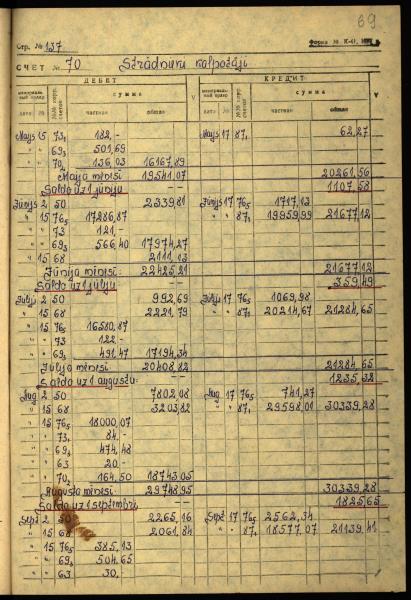 69
Стр. № 137
Форма № К-
СЧЕТ № 70 Strādnieki kalpotāji
ДЕБЕТ КРЕДИТ
сумма сумма
частная общая V частная общая
Maijs 15 73, 182,- Maijs 17 87, 62,27
" " 69, 501,69
" " 70, 136,03 16167,89
Maija mēnesī 19541,07 20261,56
Saldo uz 1 jūniju --- 1107,58
Jūnijs 2 50 2339,81 Jūnijs 17 76, 1717,13
" 15 76, 17286,87 " " 87, 19959,99 21677,12
" " 73 121,-
" " 69, 566,40 17974,27
" 15 68 2111,13
Jūnija mēnesī: 22425,21 21677,12
Saldo uz 1 jūliju --- 359,49
Jūlijs 2 50 992,69 Jūlijs 17 76, 1069,98
" 15 68 2221,79 " " 87, 20214,67 21284,65
" 15 76, 16580,87
" " 73 122,-
" " 69, 491,47 17194,34
Jūlija mēnesī 20408,82 21284,65
Saldo uz 1 augustu: --- 1235,32
Aug 2 50 7802,08 Aug 17 76, 741,27
" 15 68 3203,82 " " 87, 29598,01 30339,28
" 15 76, 18000,07
" " 73, 84,-
" " 69, 474,48
" " 63 20,-
" " 70, 164,50 18743,05
Augusta mēnesī 29748,95 30339,28
Saldo uz 1 septembri --- 1825,65
Sept 2 50 2265,16 Sept 17 76, 2562,34
" 15 68 2061,84 " " 87, 18577,07 21139,41
" 15 76, 385,13
" " 69, 504,65
" " 63 30,-